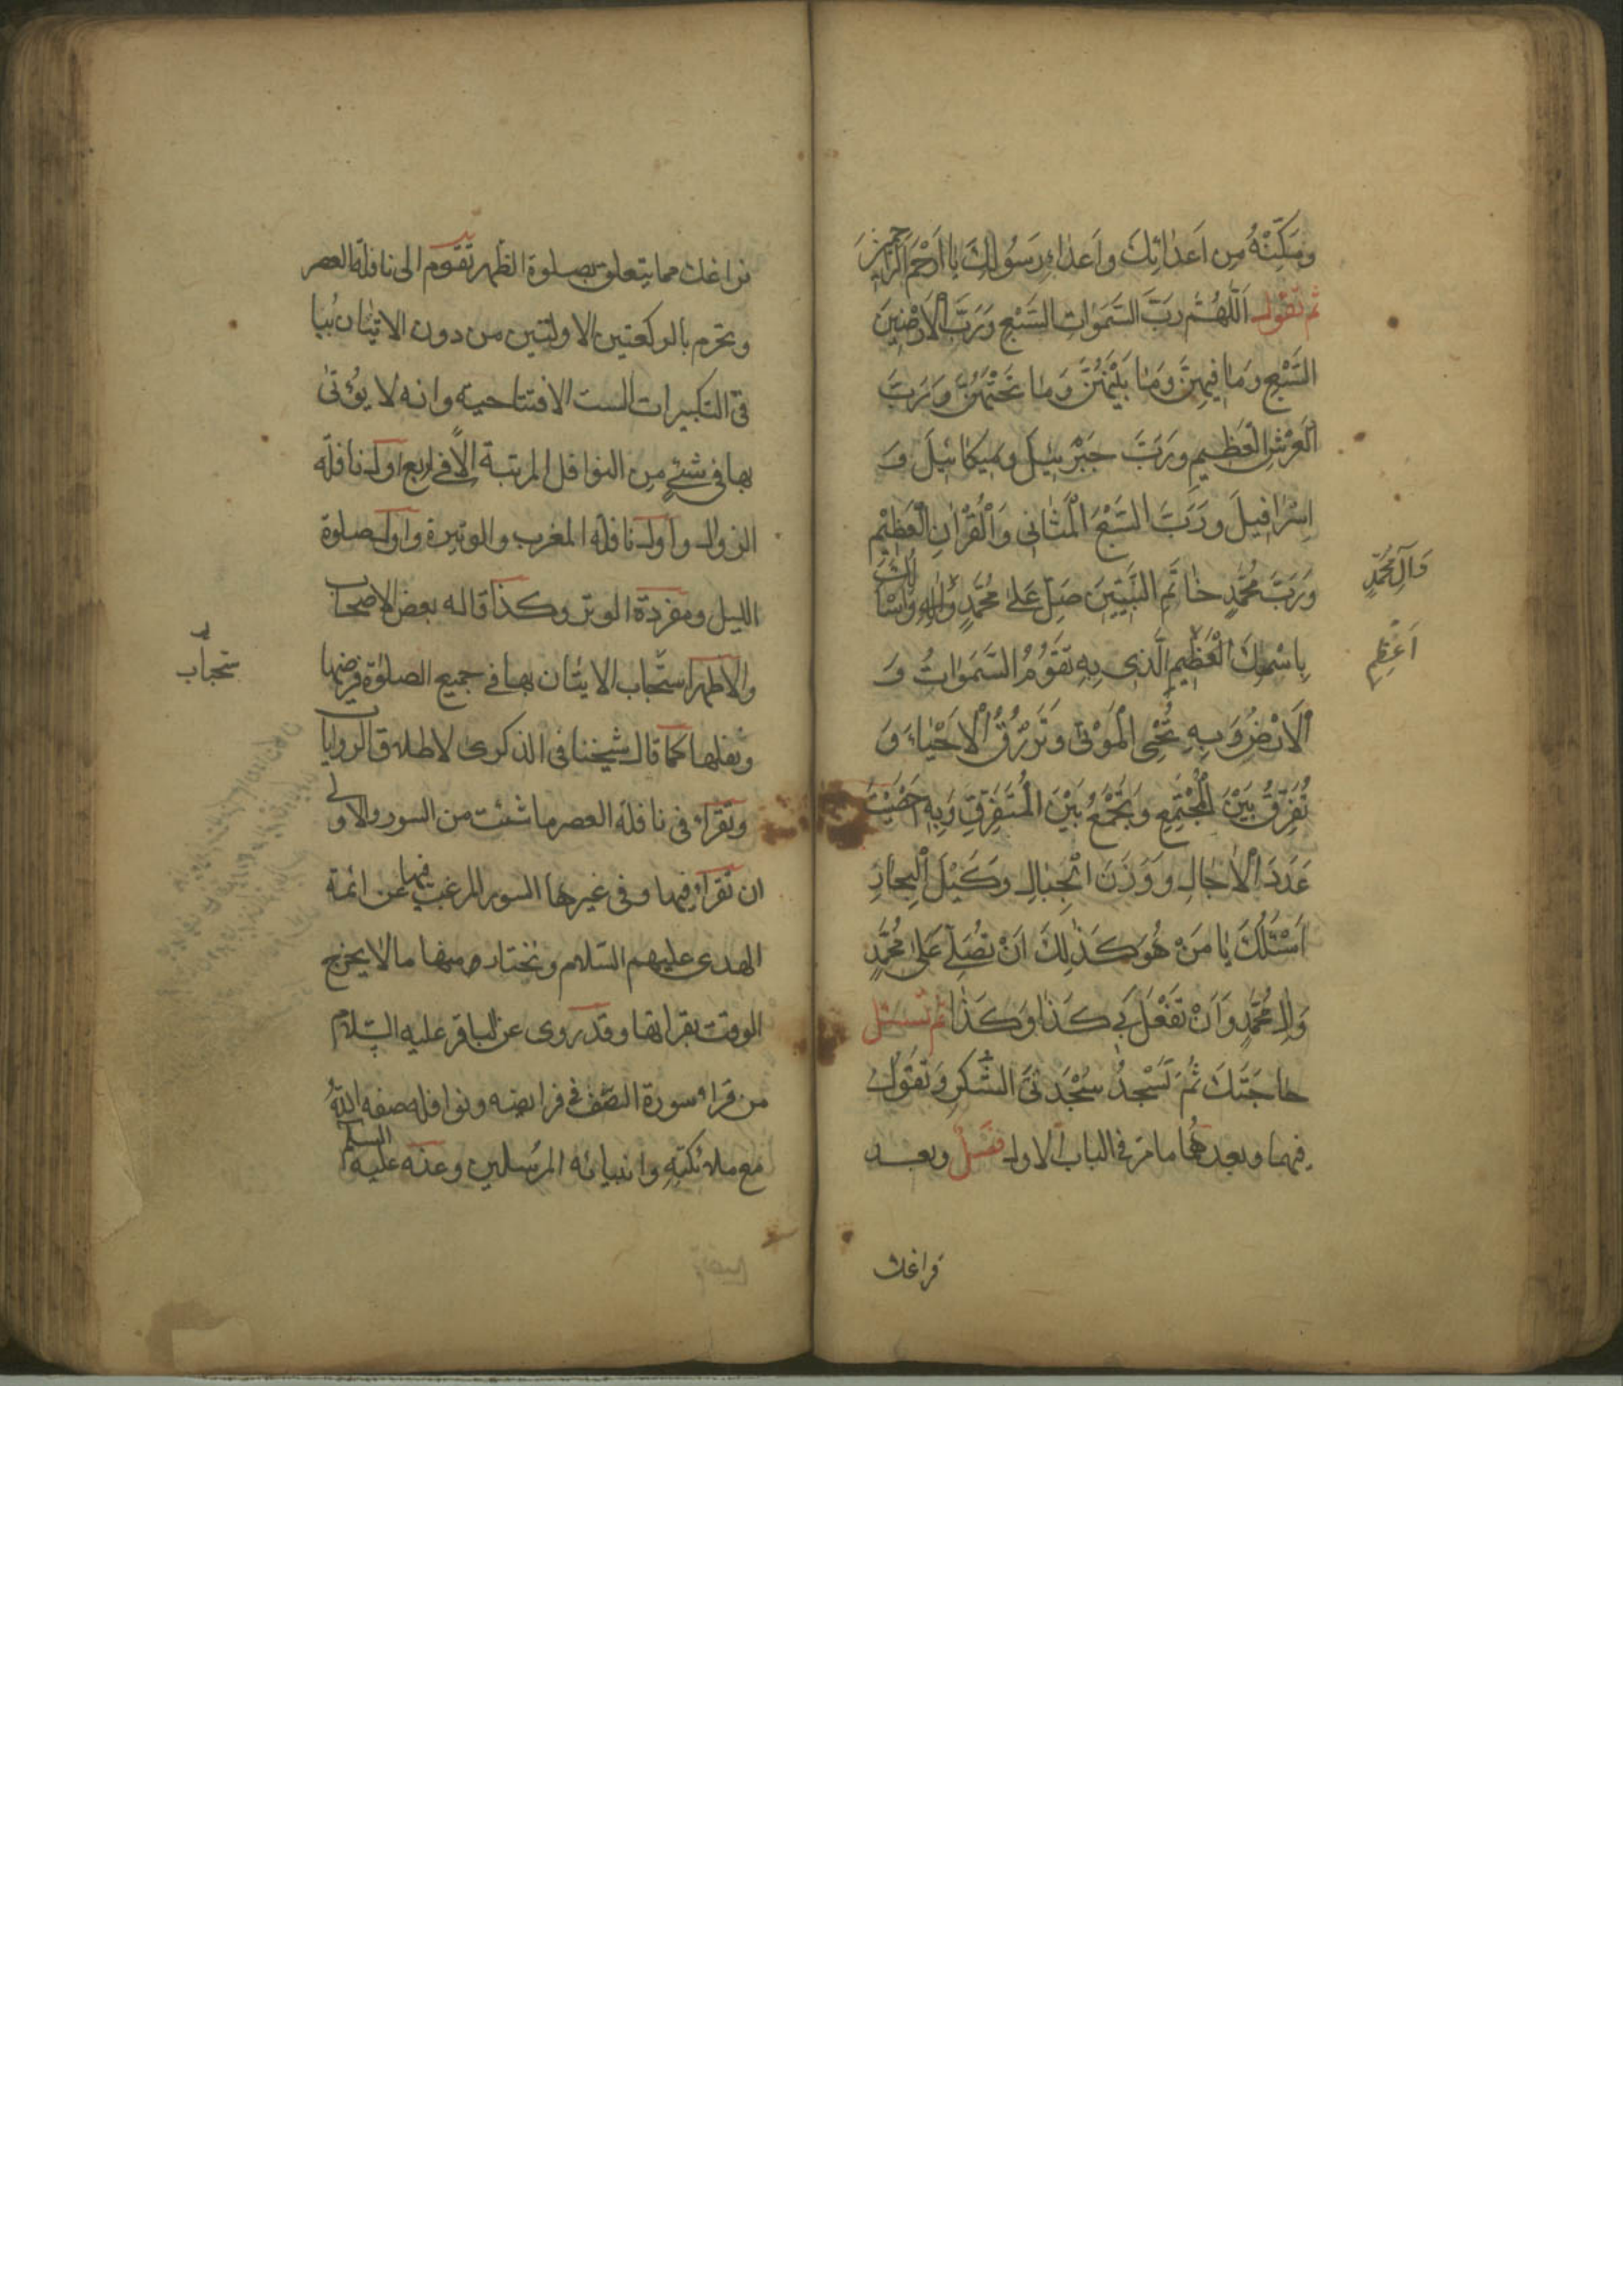 وَمَكِّنْهُ مِن اَعدٰائِكَ واَعدٰاءِ رَسُولِكَ يٰا اَرْحَمَ الرّٰاحِمينَ
ثم تقول اَللّٰهُمَّ رَبَّ السَّمَوٰاتِ السَّبْعِ وَرَبَّ الْاَرَضْينَ
السَّبْعِ وَمٰا فيهِنَّ وَمٰا بَيْنَهُنَّ وَمٰا تَحْتَهُنَّ وَرَبَّ
الْعَرْشِ الْعَظيمِ وَرَبَّ جَبْرَئيلَ وَميكٰائيلَ وَ
اِسْرٰافيلَ وَرَبَّ السَّبْعِ الْمَثٰانى وَالْقُرْاٰنِ الْعَظيْمِ
وَرَبَّ مُحَمَّدٍ خٰاتَمِ النَّبِيّينَ صَلِّ عَلىٰ مُحَمَّدٍ وَاٰلِهِ وَاَسْاَلُكَ
وَآلِ مُحَمَّدٍ
بِاسْمِكَ الْعَظيمِ الَّذى بِهِ تَقَوُمُ السَّمَوٰاتُ وَ
اَعْظَمِ
الْاَرْضُ وَبِهِ تُحْيِى الْمَوْتىٰ وَتَرْزُقُ الْاَحْيٰاءَ وَ
تُفَرِّقُ بَيْنَ الْمُجْتَمِعِ وَتَجْمَعُ بَيْنَ الْمُتَفَرِّقِ وَبِهِ اَحْصَيْتَ
عَدَدَ الْاٰجٰالِ وَوَزْنَ الْجِبٰالِ وَكَيْلَ الْبِحٰارِ
اَسْئَلُكَ يٰا مَنْ هُوَ كَذٰلِكَ اَنْ تُصَلِّىَ عَلىٰ مُحَمَّدٍ
وَاٰلِ مُحَمَّدٍ وَاَنْ تَفْعَلَ بى كَذٰا وَكَذٰا ثم تسئل
حٰاجَتَكَ ثُمَّ تَسْجُدُ سَجْدَتَىِ الشُّكْرِ وَتَقُولُ
فيهما وبعدهما ما مَرّ فى الباب الاول فَصْلٌ وبعد
فراغك
فراغك مما يتعلق بصلوة الظهر تقوم الى نافلة العصر
وتحرم بالركعتين الاولتين من دون الاتيان بباقى
التكبيرات الست الافتتاحية وانه لا يؤتى
بها فى شئ من النوافل المرتبة الّا فى اربع اول نافلة
الزوال واول نافلة المغرب والوتيرة واول صلوة
الليل ومفردة الوتر وكذا قاله بعض الاصحاب
والاظهر استحباب الاتيان بها فى جميع الصلوٰة فرضها
ستحباب
ونفلها كما قال شيخنا فى الذكرى لاطلاق الروايات
وتقراء فى نافلة العصر ما شئت من السور والاولى
ان تقراء فيها وفى غيرها السور المرغب فيها عن ائمة
الهدى عليهم السّلام وتختار منها ما لا يخرج
الوقت بقراتها وقد روى عن الباقر عليه السّلام
من قراء سورة الصّف فى فرايضه ونوافله صفه اللّٰه
مع ملائكته وانبيائه المرسلين وعنه عليه السلم